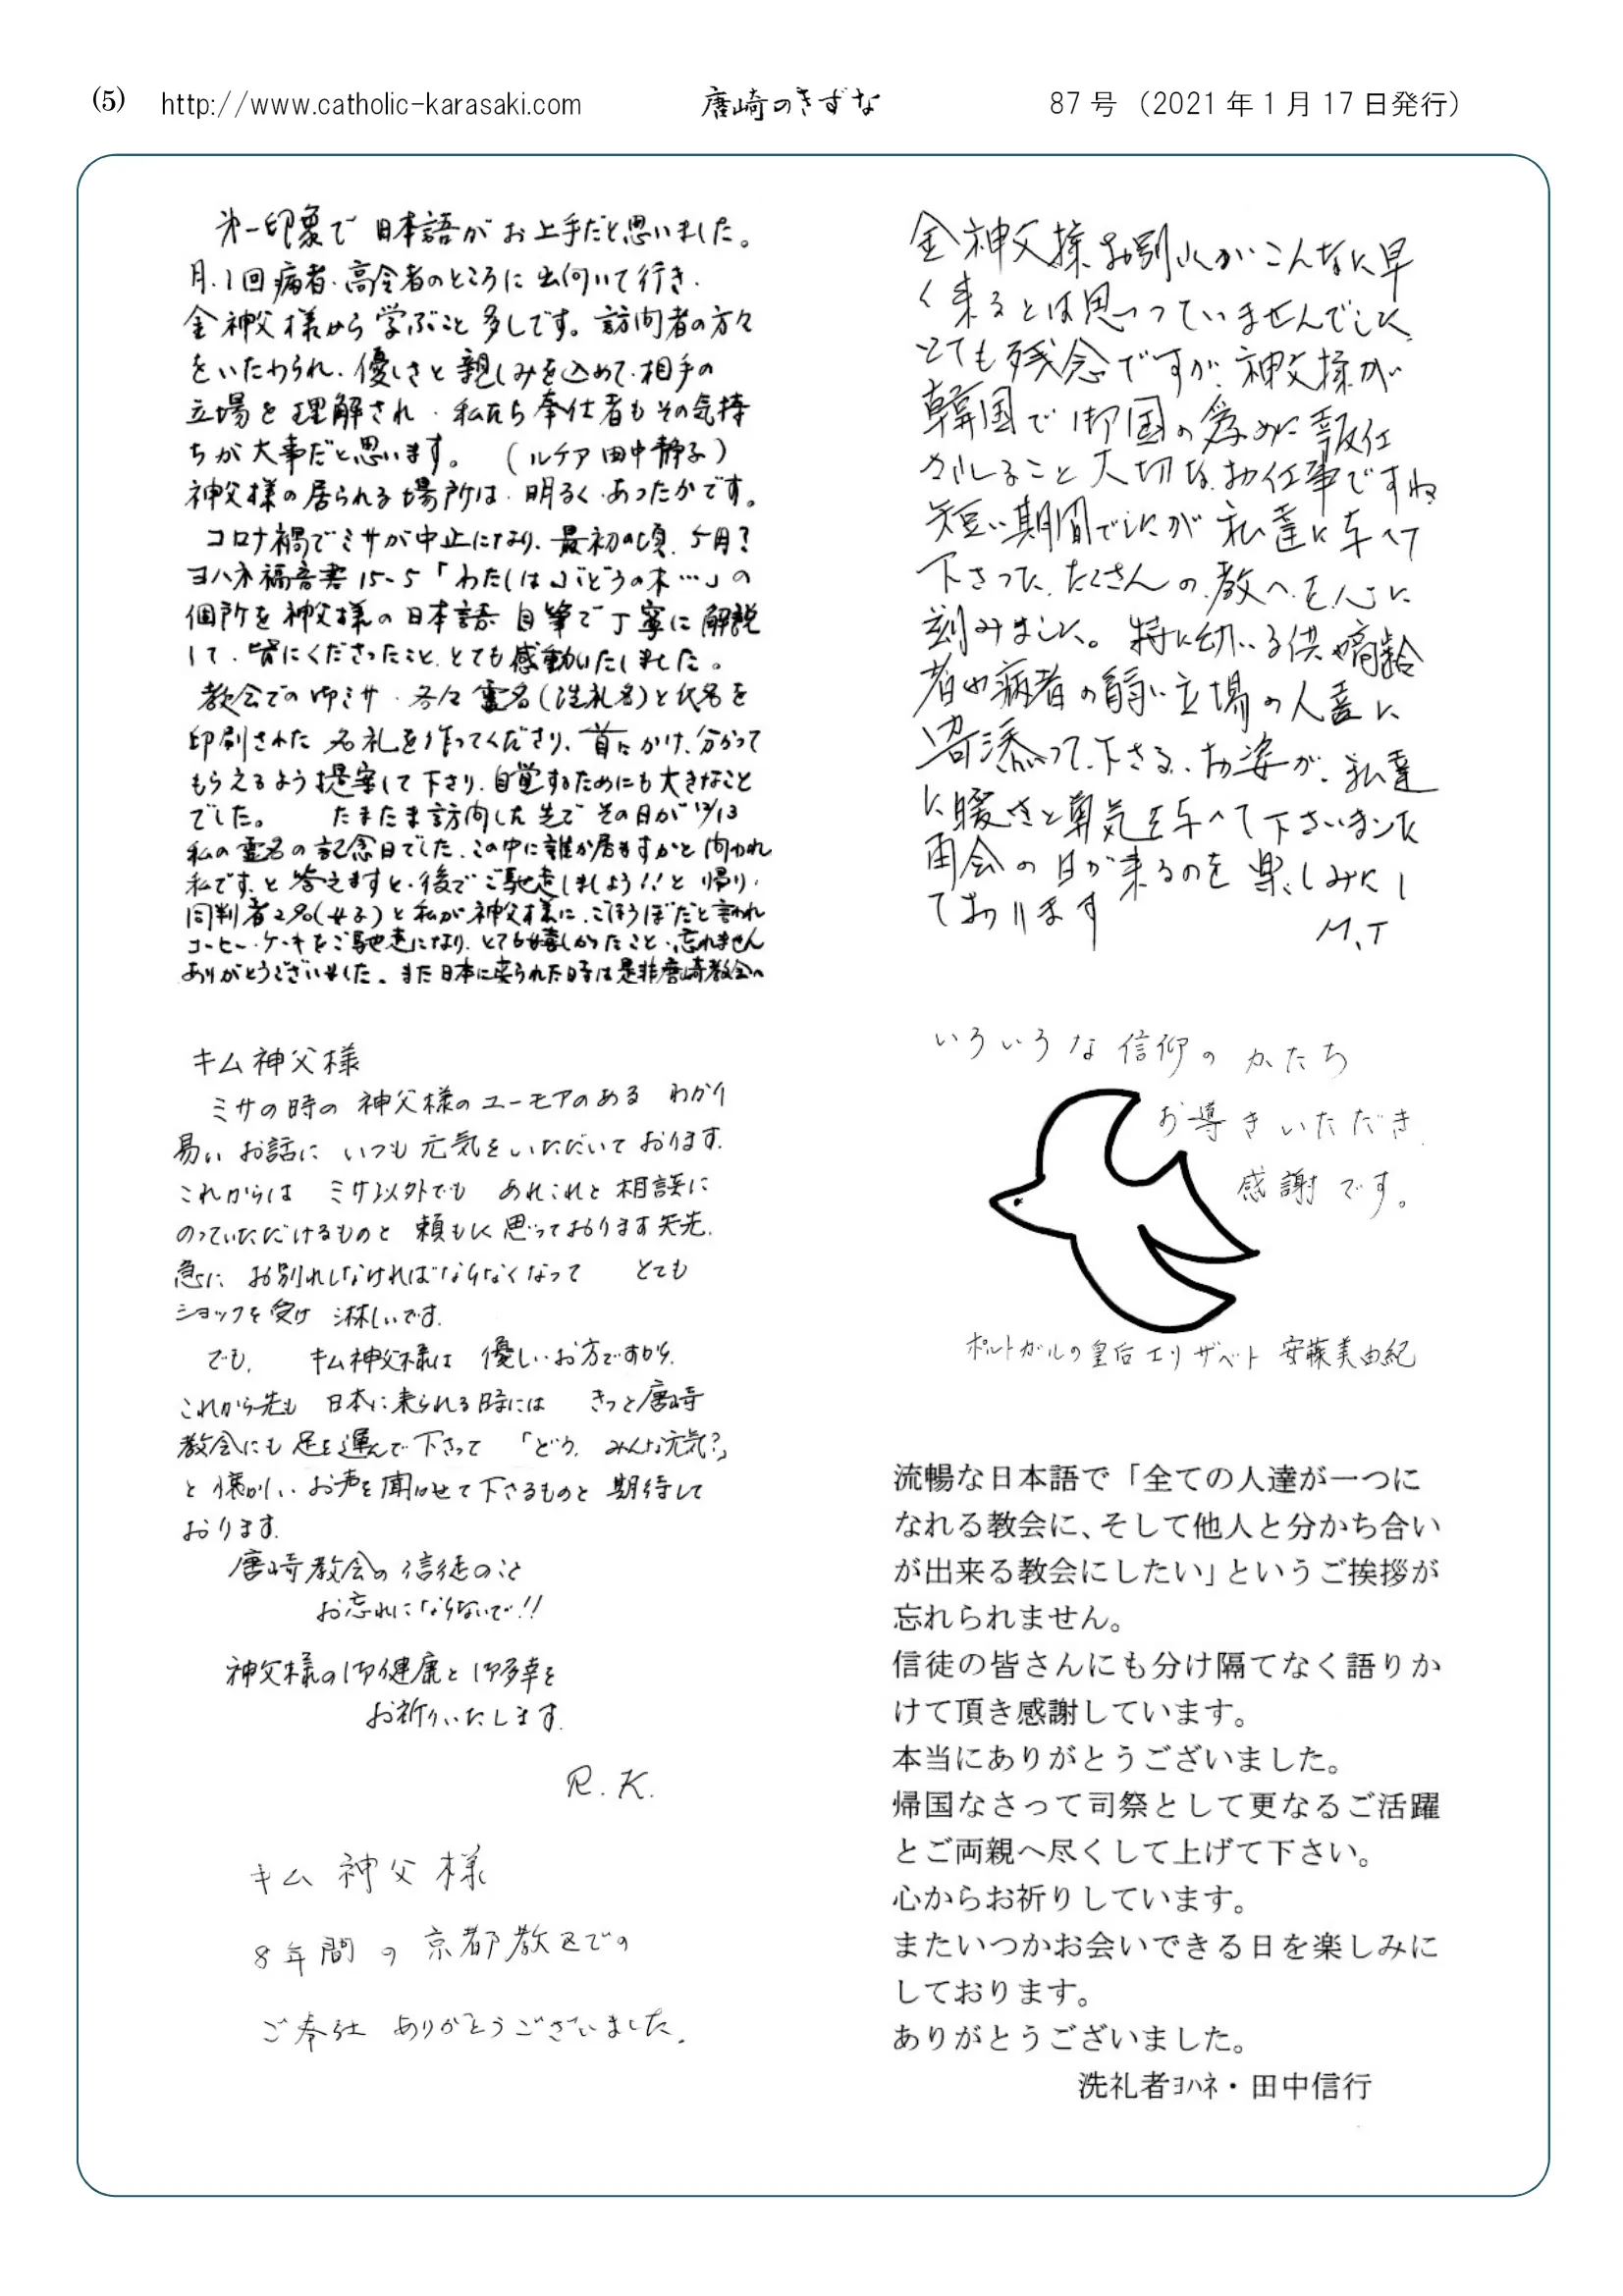 (5) http://www.catholic-karasaki.com 唐崎のきずな 87号（2021年1月17日発行）
第一印象で 日本語がお上手だと思いました。
月.1回病者.高令者のところに出向いて行き.
金神父様から学ぶこと多しです。訪問者の方々
をいたわられ.優しさと親しみを込めて.相手の
立場を理解され.私たち奉仕者もその気持
ちが大事だと思います。（ルチア田中静子）
神父様の居られる場所は.明るく.あったかです。
コロナ禍でミサが中止になり.最初の頃.5月?
ヨハネ福音書15-5「わたしはぶどうの木…」の
個所を神父様の日本語.自筆で丁寧に解説
して.皆にくださったこと.とても感動いたしました。
教会での御ミサ.各々霊名(洗礼名)と氏名を
印刷された名礼を作ってくださり、首にかけ.分かって
もらえるよう提案して下さり.自覚するためにも大きなこと
でした。 たまたま訪問した先でその日が12/13
私の霊名の記念日でした.この中に誰か居ますかと問われ
私です.と答えますと.後でご馳走しましょう!!と帰り.
同判者2名(女子)と私が神父様に.ごほうびだと言われ
コーヒー.ケーキをご馳走になり.とても嬉しかったこと.忘れません
ありがとうございました.また日本に来られた時は是非唐崎教会へ
キム神父様
ミサの時の 神父様のユーモアのある わかり
易い お話に いつも 元気をいただいて おります.
これからは ミサ以外でも あれこれと 相談に
のっていただけるものと 頼もしく思っております矢先.
急に お別れしなければならなくなって とても
ショックを受け 淋しいです.
でも. キム神父様は 優しいお方ですから.
これから先も 日本に来られる時には きっと唐崎
教会にも 足を運んで下さって 「どう. みんな元気?」
と 懐かしい お声を 聞かせて下さるものと 期待して
おります.
唐崎教会の信徒のこと
お忘れにならないで.!!
神父様の御健康と御多幸を
お祈りいたします.
R.K.
キム 神父様
8年間の 京都教区での
ご奉仕 ありがとうございました.
金神父様お別れがこんなに早
く来るとは思っていませんでした
とても残念ですが.神父様が
韓国で御国の為めに
されること大切なお仕事ですね
短い期間でしたが 私達に与へて
下さった.たくさんの教へを心に
刻みました。特に幼い子供や高齢
者や病者の弱い立場の人達に
寄添って.下さる.お姿が.私達
に暖さと勇気を与へて下さいました
再会の日が来るのを楽しみにし
ております
M.T
いろいろな信仰のかたち
お導きいただき.
感謝です。
ポルトガルの皇后エリザベト 安藤美由紀
流暢な日本語で「全ての人達が一つに
なれる教会に、そして他人と分かち合い
が出来る教会にしたい」というご挨拶が
忘れられません。
信徒の皆さんにも分け隔てなく語りか
けて頂き感謝しています。
本当にありがとうございました。
帰国なさって司祭として更なるご活躍
とご両親へ尽くして上げて下さい。
心からお祈りしています。
またいつかお会いできる日を楽しみに
しております。
ありがとうございました。
洗礼者ﾖﾊﾈ・田中信行